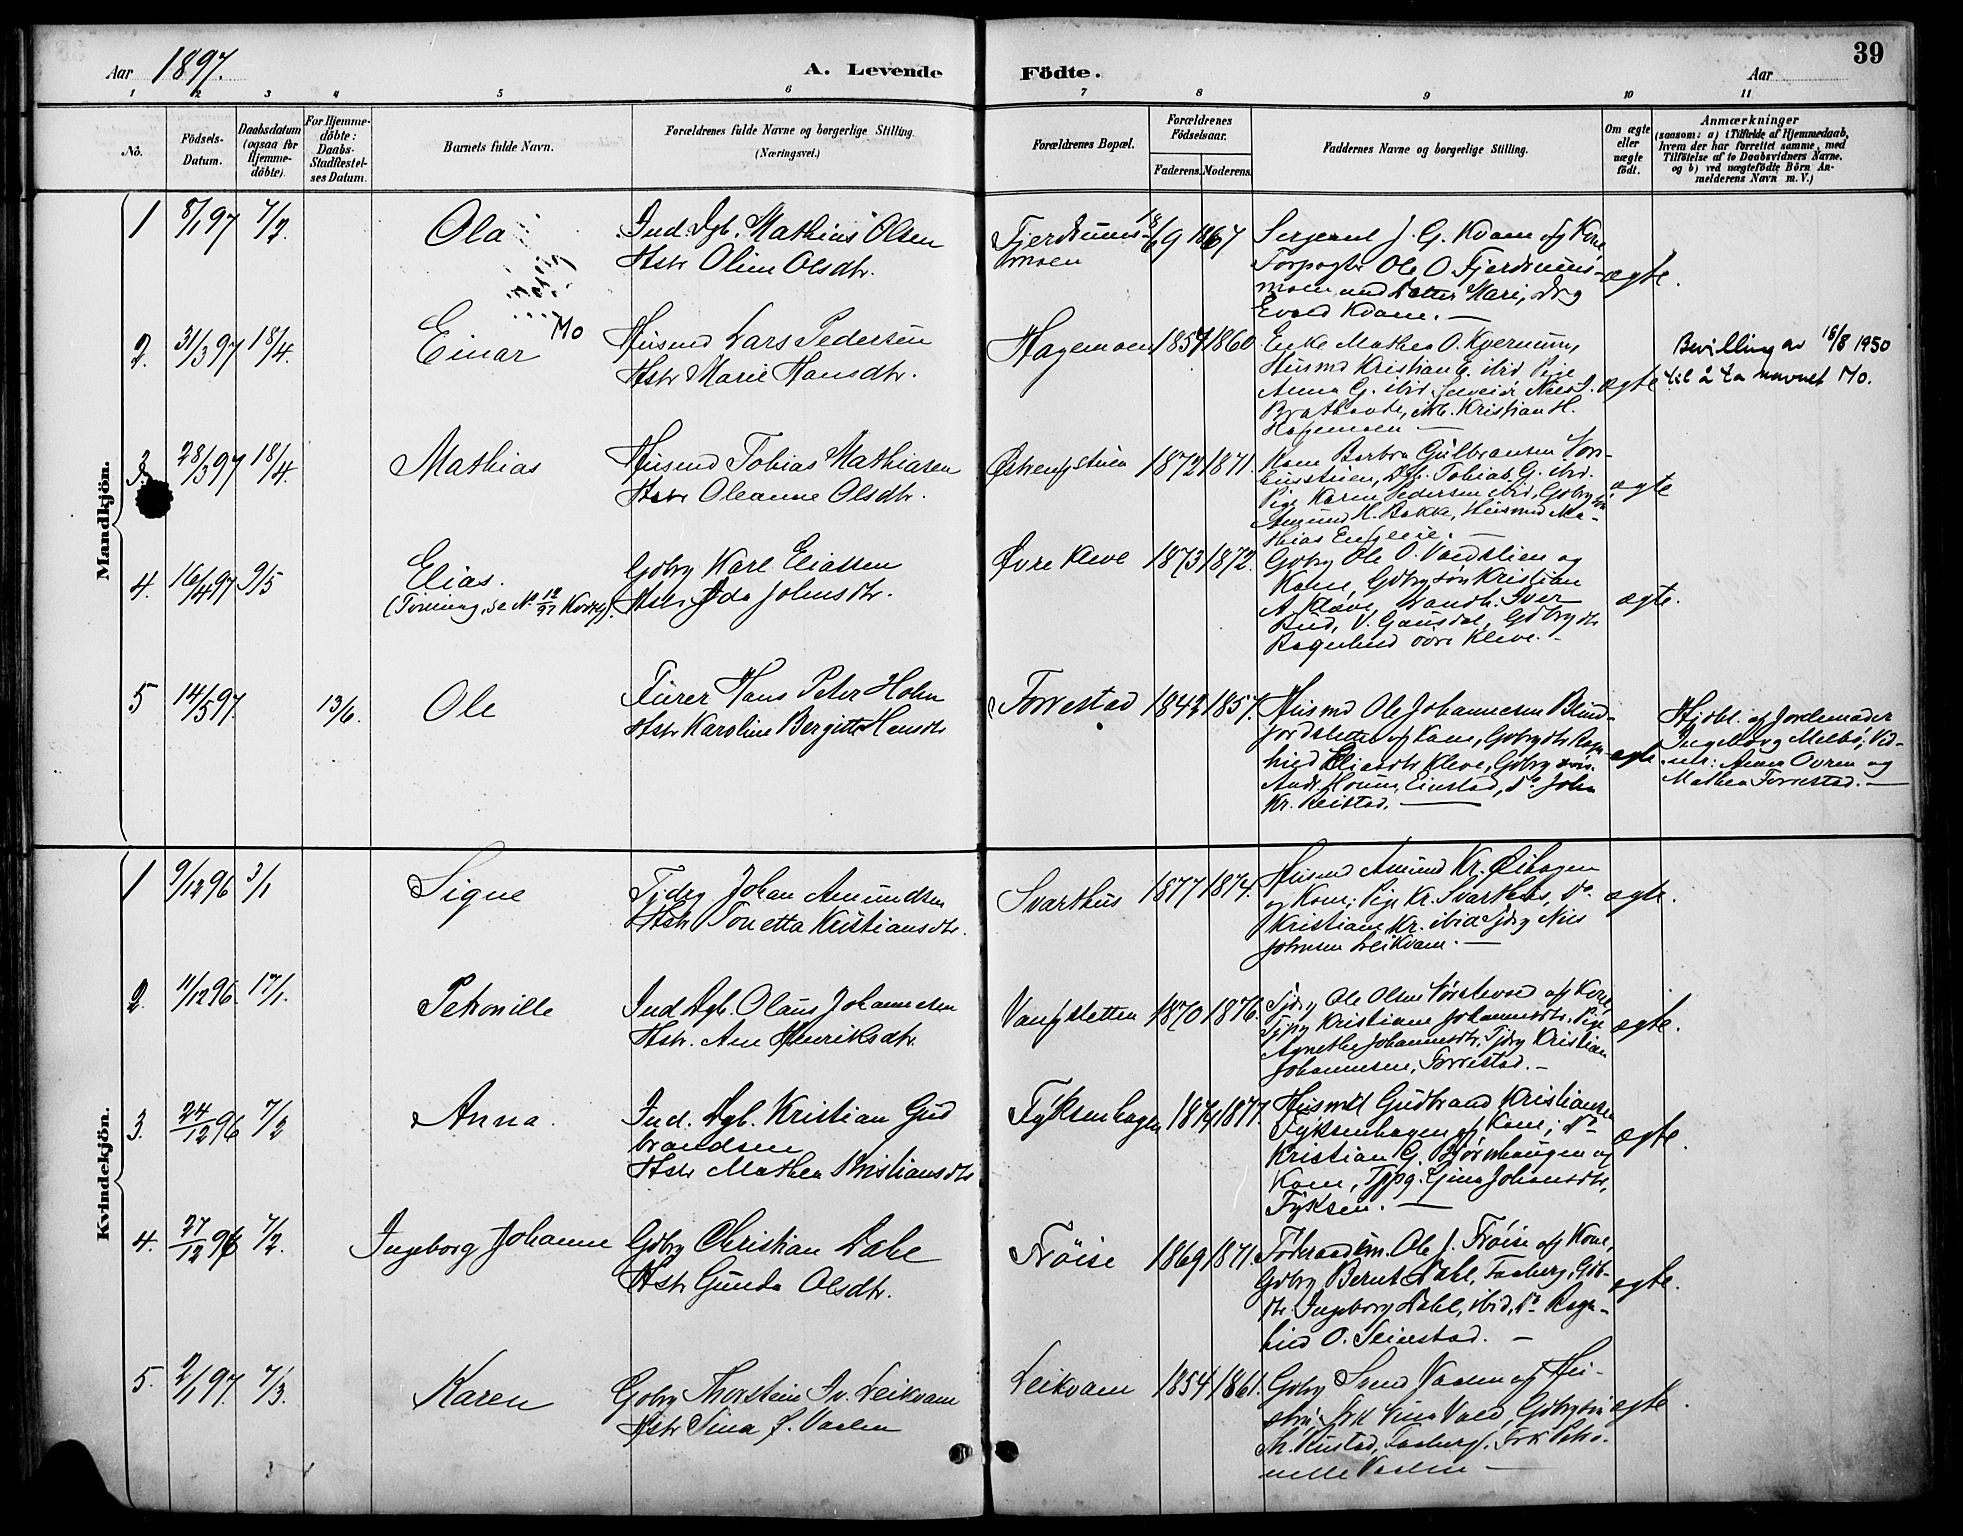 39
Aar 1897.
A. Levende Födte.
Aar
1 2 3 4 5 6 7 8 9 10 11
No.
Födsels-Datum.
Daabsdatum (ogsaa for Hjemme-döbte).
For Hjemme-döbte: Daabs-Stadfæstel-ses Datum.
Barnets fulde Navn.
Forældrenes fulde Navne og borgerlige Stilling.
(Næringsvei.)
Forældrenes Bopæl.
Forældrenes Födselsaar.
Faderens. Moderens.
Faddernes Navne og borgerlige Stilling.
Om ægte eller uægte födt.
Anmærkninger
(saasom: a) i Tilfælde af Hjemmedaab,
hvem der har forrettet samme, med
Tilföielse af to Daabsvidners Navne.
og b) ved uægtefödte Börn An-
melderens Navn m. V.)
Mandkjön.
1 8/1 97 7/2. Ola
Ind. Dgb. Mathias Olsen
Hstr Oline Olsdtr.
Fjerdrums-
moen
18/69 1867
Sergeant J. G. Kvam og Kone
Forpagter Ole O. Fjerdrums-
moen und Datter Mari,
Evald Kvam. —
ægte.
2. 31/3 97 18/4. Einar Mo
Husmd Lars Pedersen
Hstr Marie Hansdtr.
Hagemoen 1857 1860
Enke Mathea O. Kvernum,
Husmd Kristian G. ibid Pige
Anna G. ibid.
Kristian H.
Hagemoen —
ægte
Bevilling av 18/8 1950
til å ta navnet Mo.
3. 28/3 97 18/4. Mathias
Husmd Tobias Mathiasen
Hstr Oleanne Olsdtr.
Østengstuen 1872 1871.
Kone Barbra Gulbransen
Tobias G. ibid.
Pige Karen Pedersen ibid, Gdbrg
Amund H. Bakke, Husmd Ma-
thias Engeie. —
ægte
4. 16/4 97 9/5 Elias.
(Tvilling, se No 12/97 Kvkj).
Gdbrg Karl Eliassen
Hstr Ida Johnsdtr.
Øvre Kleve 1873 1872.
Gdbrg Ole O. og
Kone, Gdbrg søn Kristian
A. Kleve, Iver
V. Gausdal, Gdbrg dtr
øvre Kleve. —
ægte.
5 14/5 97. 13/6. Ole
Furer Hans Peter Holm
Hstr Karoline Bergitte Hansdtr
Forrestad 1842 1857.
Husmd Ole Johannesen
og Kone, Gdbrg dtr Ragn-
hild Eliasdtr Kleve, Gdbrg søn
Einstad, do John
Kr. Reistad. —
ægte
Hjdbt. af Jordemoder
Ingeborg Melbö; Vid-
ner: Anne Ovren og
Mathea Forrestad. —
Kvindekjön.
1 9/12 96 3/1 Signe
Tjdrg Johan Amundsen
Hstr Tonetta Kristiansdtr.
Svarthus 1877 1874.
Husmd Amund Kr. Øihagen
og Kone; Pige Kr. Svarthus, do
Kristiane Kr. ibid Tjdrg Nils
Johnsen Leikvam. —
ægte.
2. 11/12 96. 17/1. Petronille
Ind Dgb. Olaus Johannesen
Hstr. Ane Henriksdtr.
Vangsletten 1870 1876.
Tjdrg Ole Olsen og Kone,
Tjpg Kristiane Johannesdtr. Pige
Agnethe Johannesdtr, Tjdrg Kristian
Johannesen, Forrestad. —
ægte.
3. 24/12 96 7/2 Anna.
Ind. Dgb. Kristian Gud
brandsen
Hstr Mathea Kristiansdtr
Fyksenhagen 1874 1877.
Husmd Gudbrand Kristiansen
Fyksenhagen og Kone; do
Kristian G. Björnhaugen og
Kone, Tjpg. Gina Johansdtr,
Fyksen. —
ægte.
4. 27/12 96 7/2. Ingeborg Johanne
Gdbrg Christian Dahl
Hstr Gunda Olsdtr.
Fröise 1869 1871.
Föderaadsm. Ole J. Fröise og Kone,
Gdbrg Bernt Dahl, Faaberg, Gdb-
dtr. Ingeborg Dahl, ibid, do Ragn-
hild O. Seinstad. —
ægte.
5. 2/1 97. 7/3. Karen
Gdbrg Thorstein Iv. Leikvam
Hstr Sina L. Vaalen
Leikvam 1854 1861.
Gdbrg Svend Vaalen og Hu-
stru, Frk Lina Vold, Gdbrg søn
Faaberg. Frk Petro-
nelle Vaalen —
ægte.